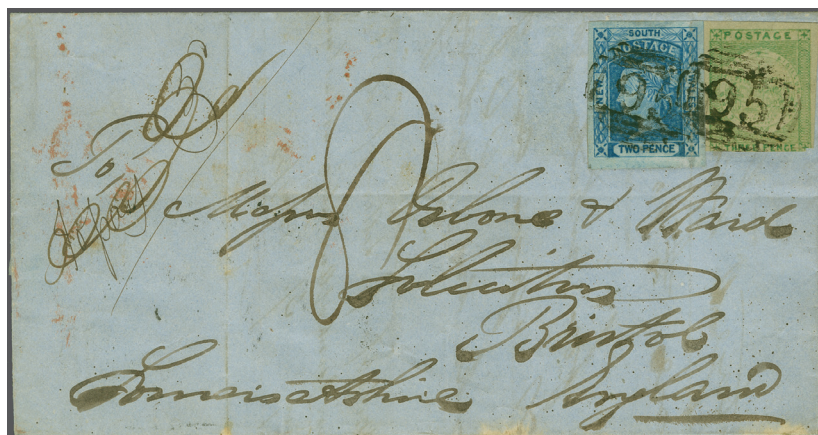 SOUTH
POSTAGE
NEW WALES
TWO PENCE
POSTAGE
THREE PENCE
95
95
8
To
Messrs Osborne & Ward
Solicitors
Bristol
Somersetshire England